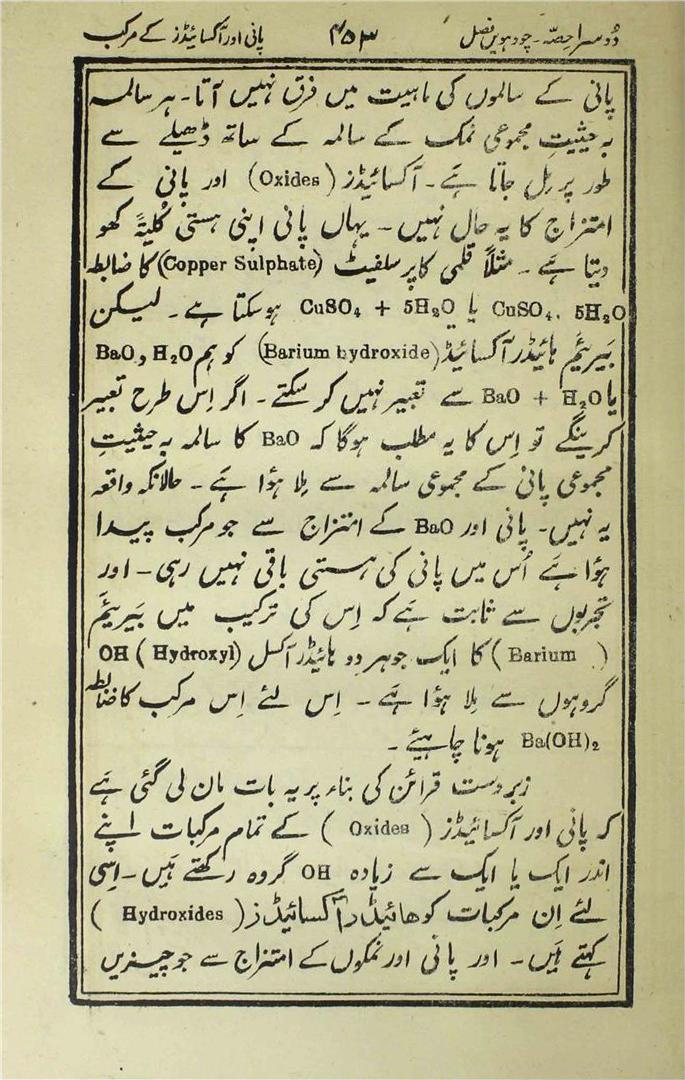 دُوسرا حصّہ۔ چودہویں فصل ۴۵۳ پانی اور آکسائیڈز کے مرکب
پانی کے سالموں کی ماہیت میں فرق نہیں آتا۔ ہر سالمہ
بہ حیثیتِ مجموعی نمک کے سالمہ کے ساتھ ڈھیلے سے
طور پر مِل جاتا ہَے۔ آکسائیڈز (Oxides) اور پانی کے
امتزاج کا یہ حال نہیں۔ یہاں پانی اپنی ہستی کُلیۃً کھو
دیتا ہَے۔ مثلاً قلمی کاپر سلفیٹ (Copper Sulphate) کا ضابطہ
CuSO₄. 5H₂O یا CuSO₄ + 5H₂O ہوسکتا ہے۔ لیکن
بَیرئیَم ہائیڈر آکسائیڈ (Barium hydroxide) کو ہم BaO, H₂O
یا BaO + H₂O سے تعبیر نہیں کر سکتے۔ اگر اِس طرح تعبیر
کرینگے تو اِس کا یہ مطلب ہوگا کہ BaO کا سالمہ بہ حیثیتِ
مجموعی پانی کے مجموعی سالمہ سے مِلا ہؤا ہَے۔ حالانکہ واقعہ
یہ نہیں۔ پانی اور BaO کے امتزاج سے جو مرکب پیدا
ہؤا ہَے اُس میں پانی کی ہستی باقی نہیں رہی۔ اور
تجربوں سے ثابت ہَے کہ اِس کی ترکیب میں بَیرئیَم
(Barium) کا ایک جوہر دو ہائیڈر آکسل (Hydroxyl) OH
گروہوں سے مِلا ہؤا ہَے۔ اِس لئے اِس مرکب کا ضابطہ
Ba(OH)₂ ہونا چاہیئے۔
زبردست قرائن کی بناء پر یہ بات مان لی گئی ہَے
کہ پانی اور آکسائیڈز (Oxides) کے تمام مرکبات اپنے
اندر ایک یا ایک سے زیادہ OH گروہ رکھتے ہَیں۔ اِسی
لئے اِن مرکبات کو ھائیڈرآکسائیڈز (Hydroxides)
کہتے ہَیں۔ اور پانی اور نمکوں کے امتزاج سے جو چیزیں